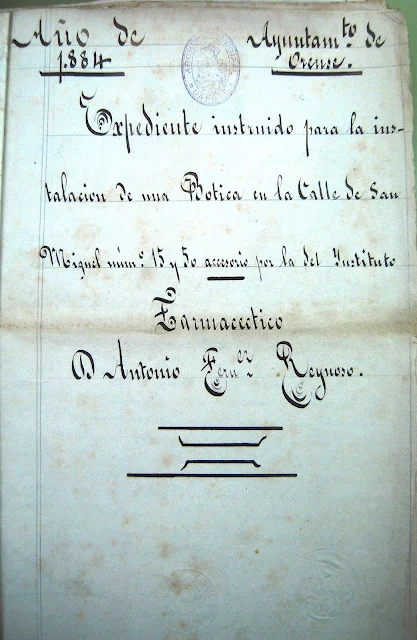 Año de Ayuntam.to de
1.884 Orense.
Expediente instruido para la ins-
talacion de una Botica en la Calle de San
Miguel núm.o 15 y 50 accesorio por la del Instituto
Farmacectico
D Antonio Fern.ez Reynoso.